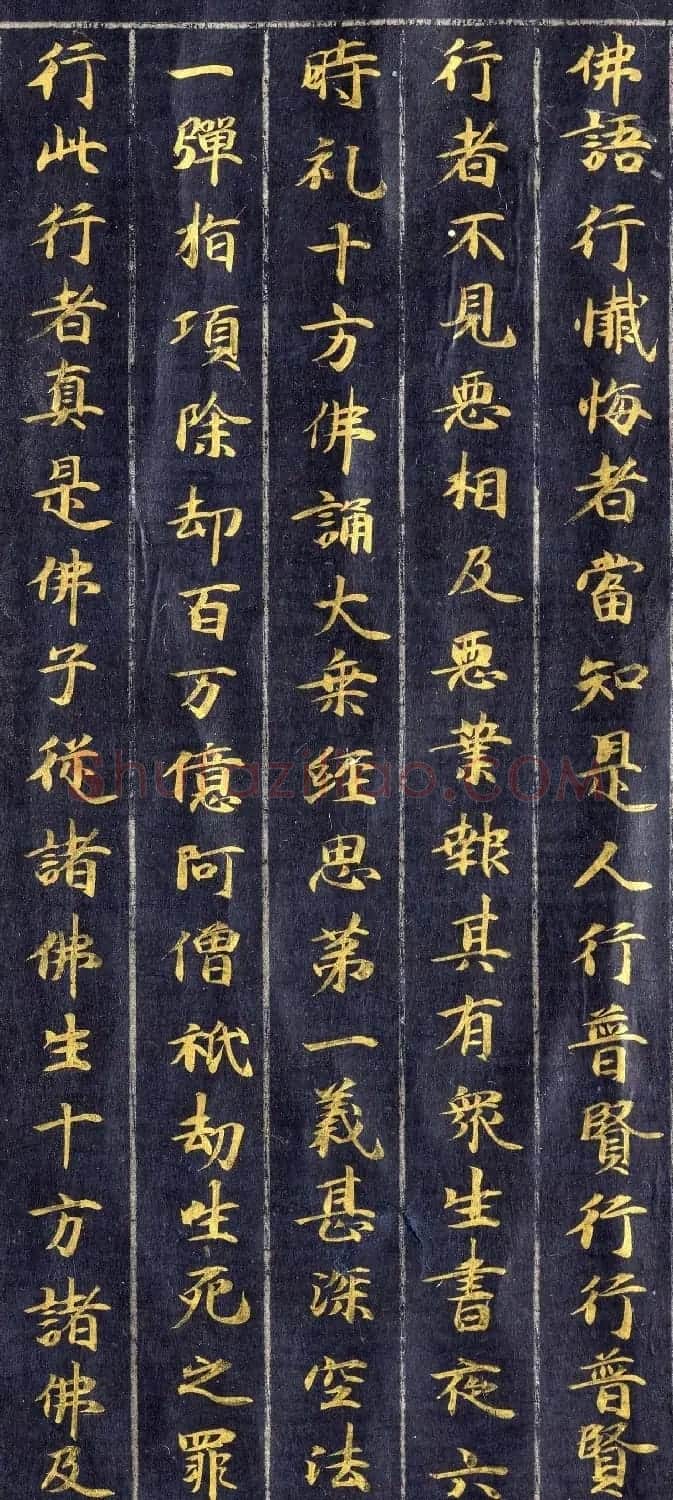 佛語行懺悔者當知是人行普賢行行普賢
行者不見惡相及惡業報其有眾生書夜六
時礼十方佛誦大乗經思第一義甚深空法
一彈指項除却百万億阿僧祇劫生死之罪
行此行者真是佛子從諸佛生十方諸佛及
Shufaziliao.COM